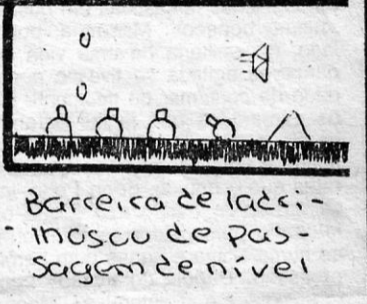 Barreira de ladri-
- lhos ou de pas-
sagem de nível